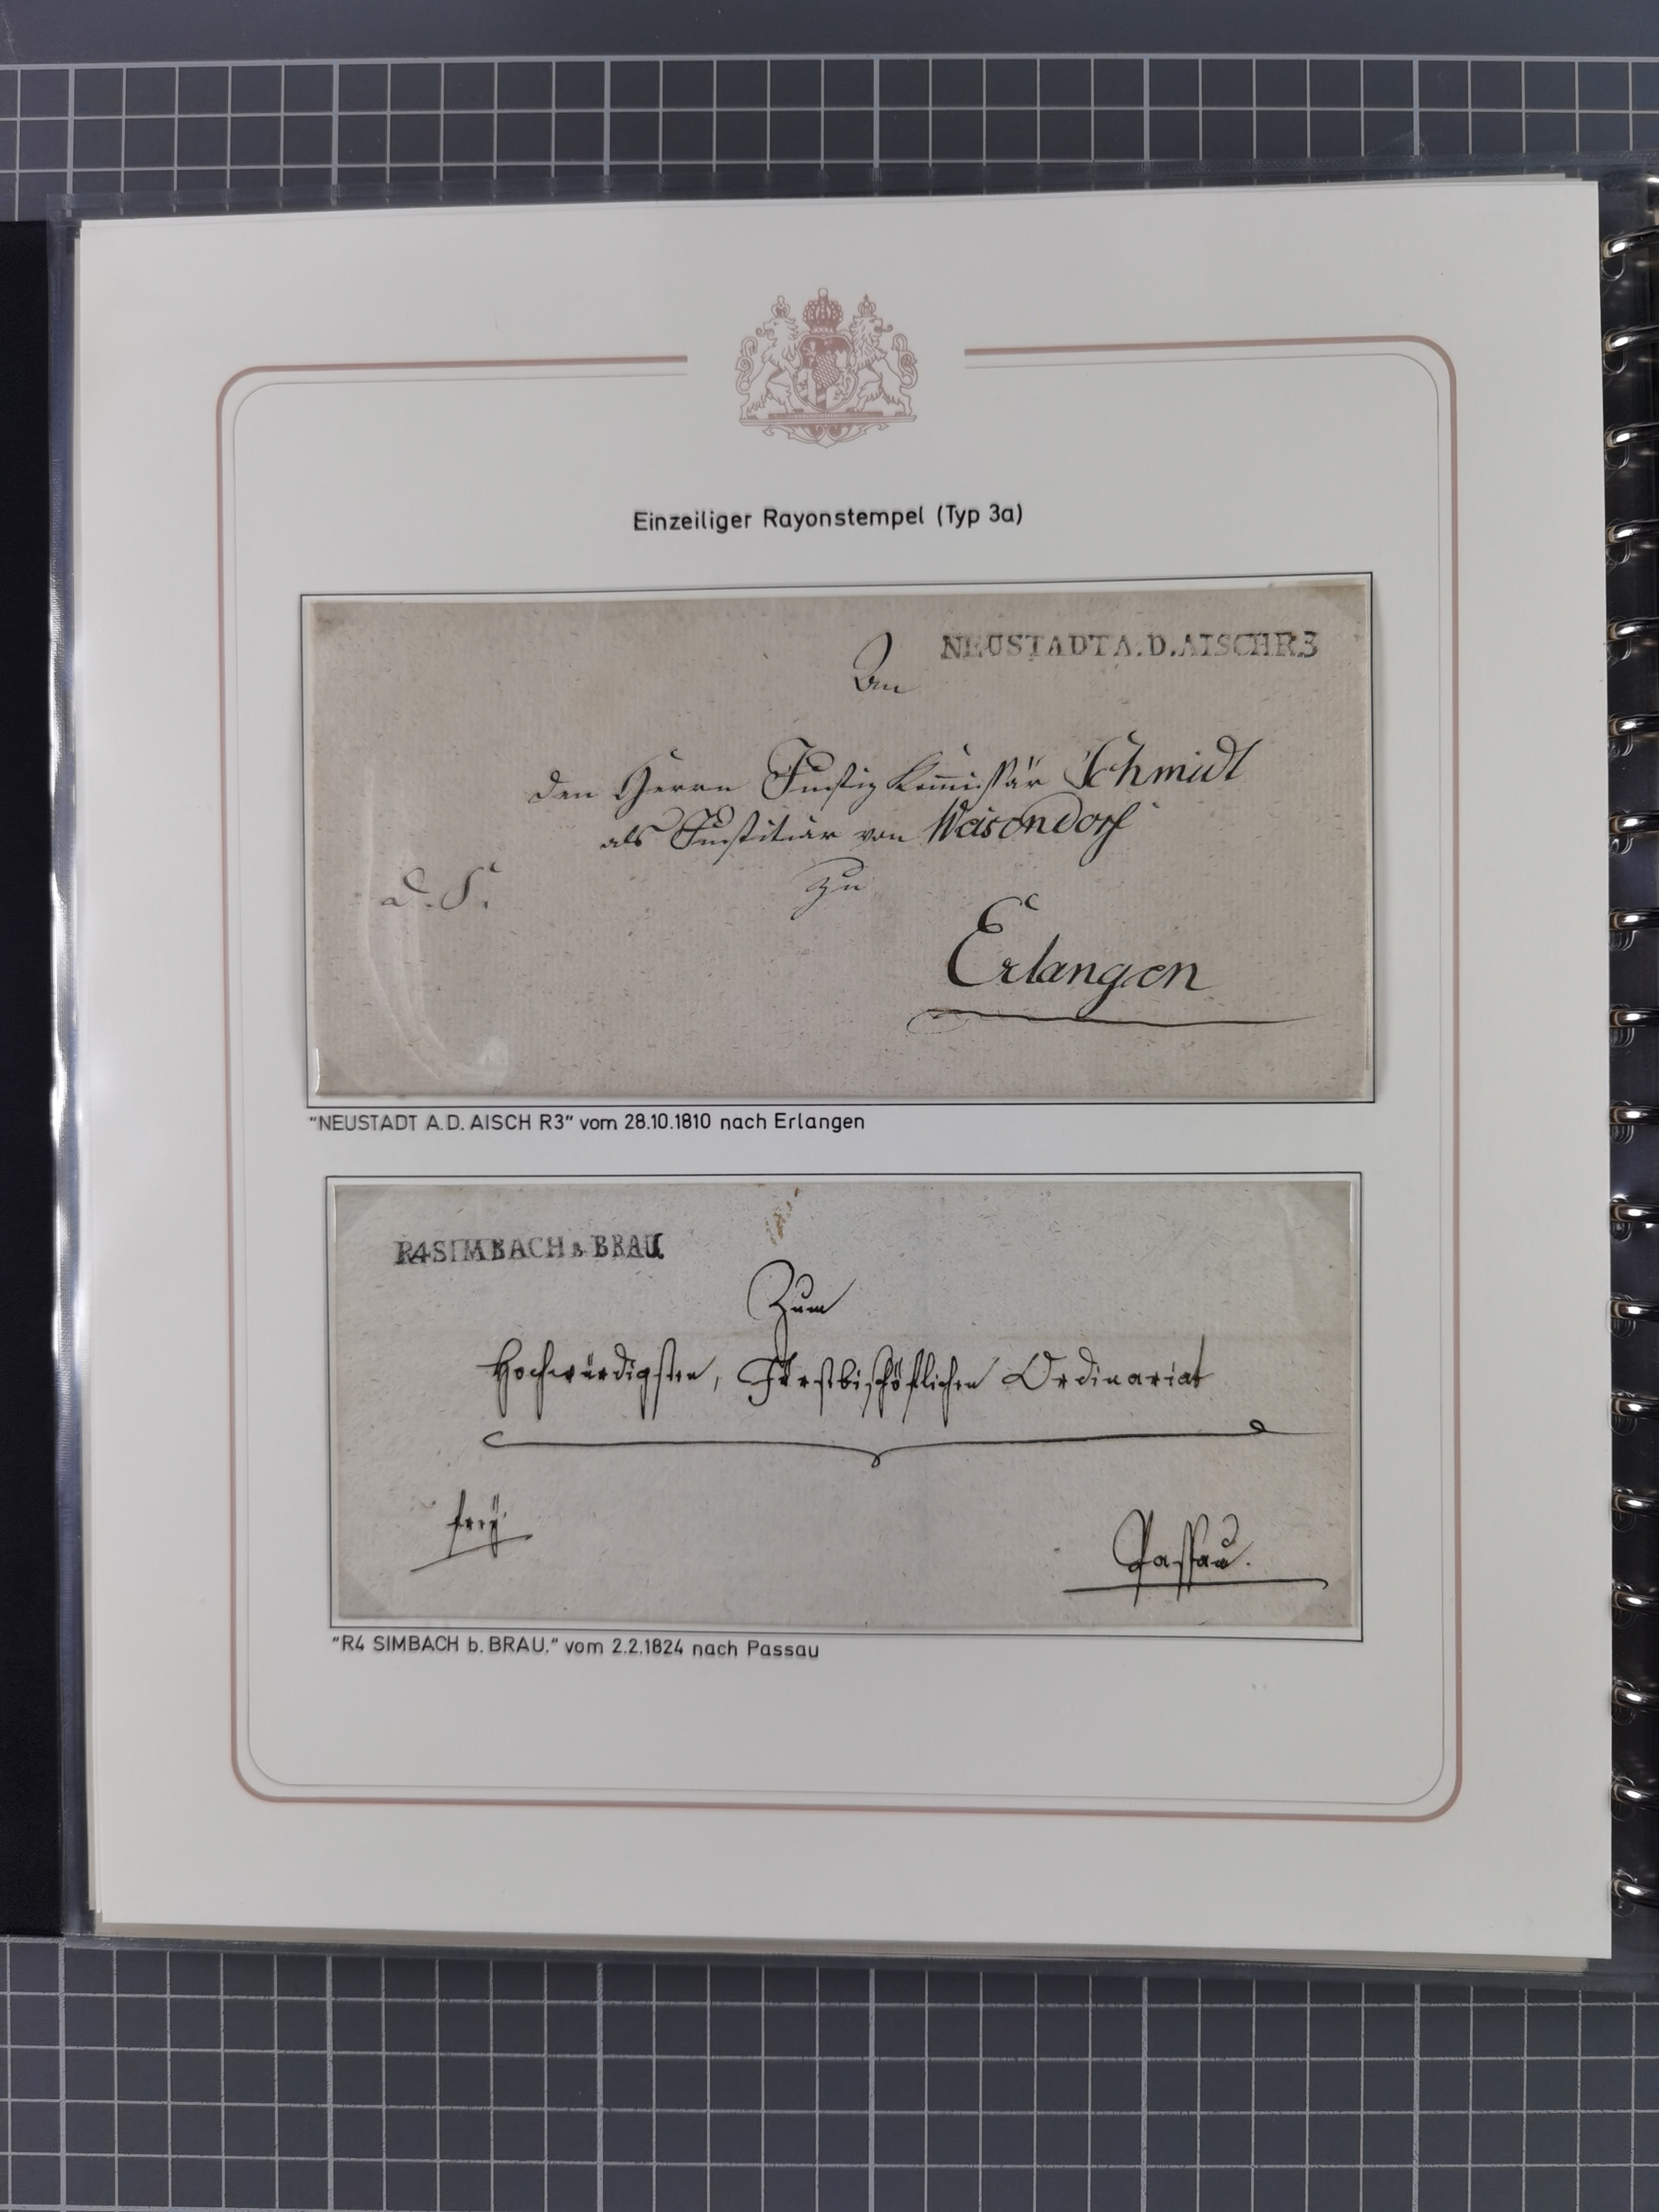 Einzeiliger Rayonstempel (Typ 3a)
NEUSTADT A.D.AISCH R3
An
den Herrn Justiz Kom̄issär Schmidt
als Justitiar von Weisendorf
D. S.
zu
Erlangen
"NEUSTADT A.D. AISCH R3" vom 28.10.1810 nach Erlangen
R4 SIMBACH B BRAU.
Zum
Hochwürdigsten, Fürstbischöflichen Ordinariat
freÿ.
Passau.
"R4 SIMBACH b. BRAU." vom 2.2.1824 nach Passau